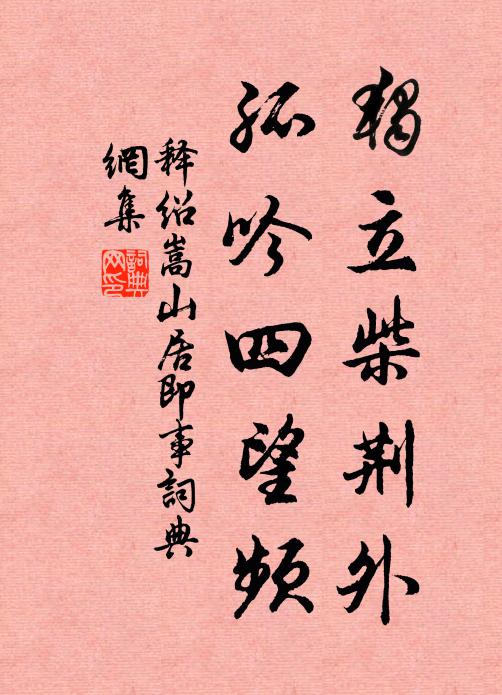 獨立柴荆外
孤吟四望頻
释绍嵩山居即事詞典
網集
詞典
网印